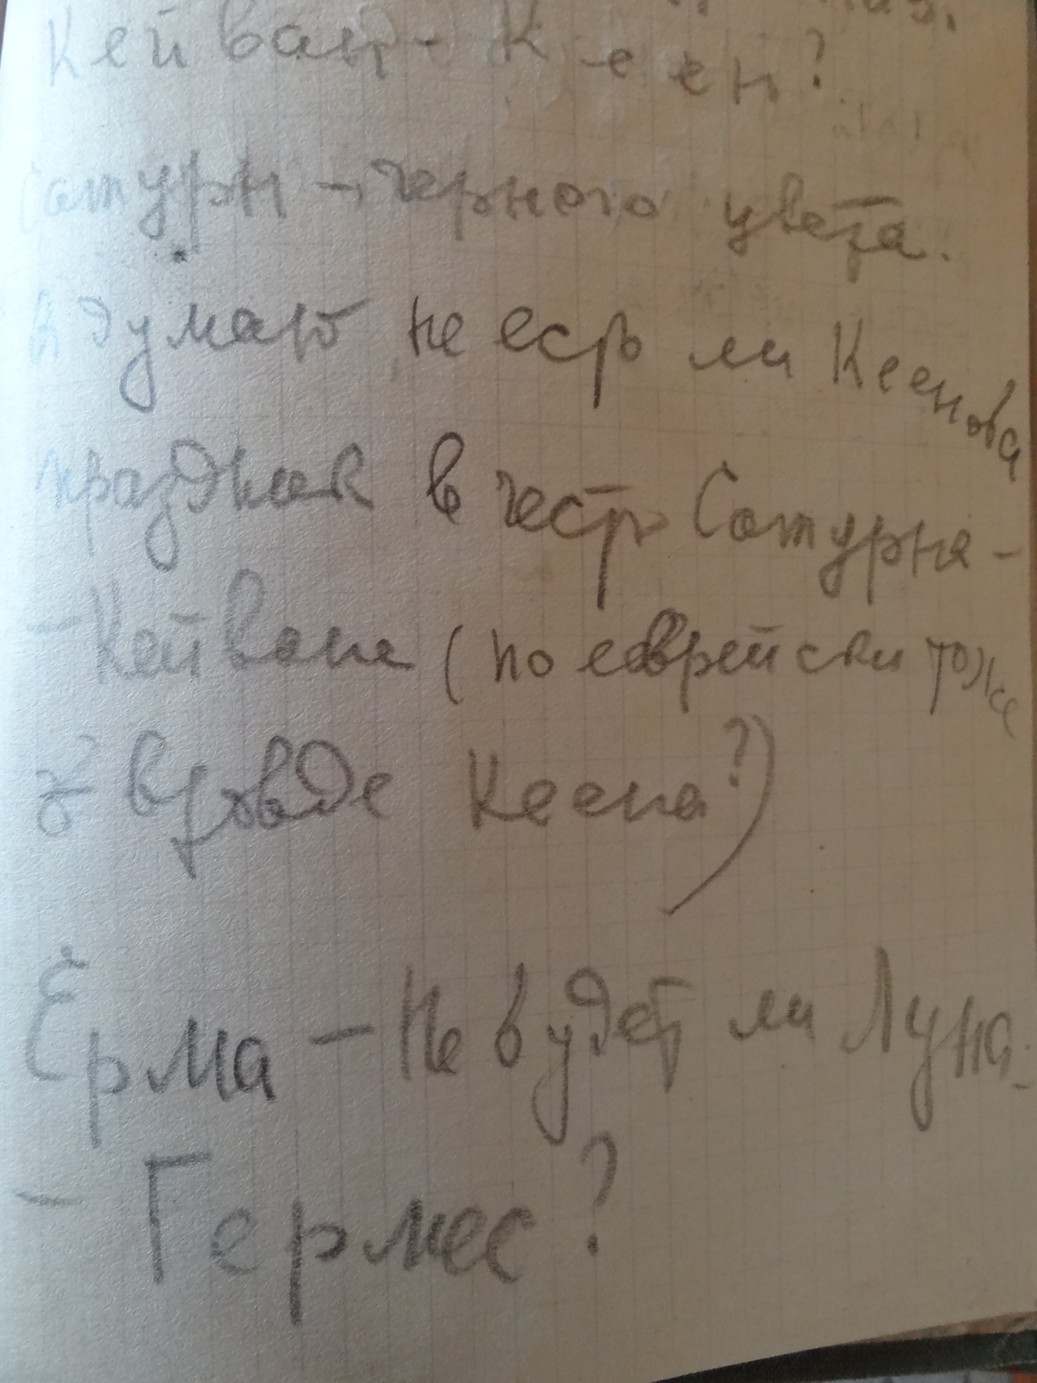 Кейван - Кеен?
Сатурн → черного цвета.
Я думаю, не есть ли Кеенова
праздник в честь Сатурна -
- Кейвана (по еврейски тоже
вроде Кеена?)
Ёрма - Не будет ли Луна -
- Гермес?